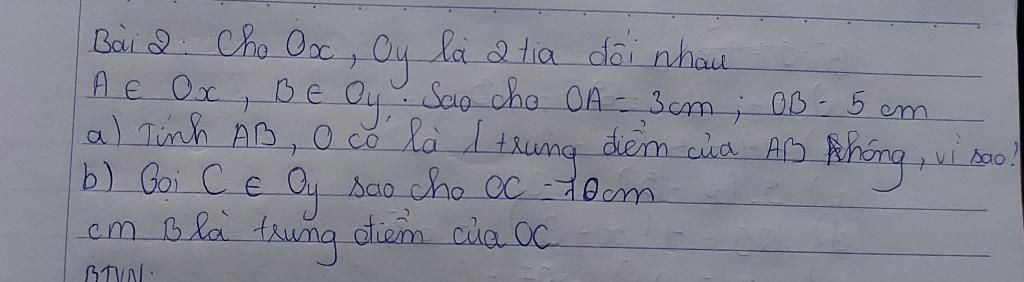 Bài 2: Cho Ox, Oy là 2 tia đối nhau
A ∈ Ox, B ∈ Oy. Sao cho OA = 3cm; OB = 5 cm
a) Tính AB, O có là trung điểm của AB không, vì sao?
b) Gọi C ∈ Oy sao cho OC = 10cm
cm B là trung điểm của OC
BTVN: